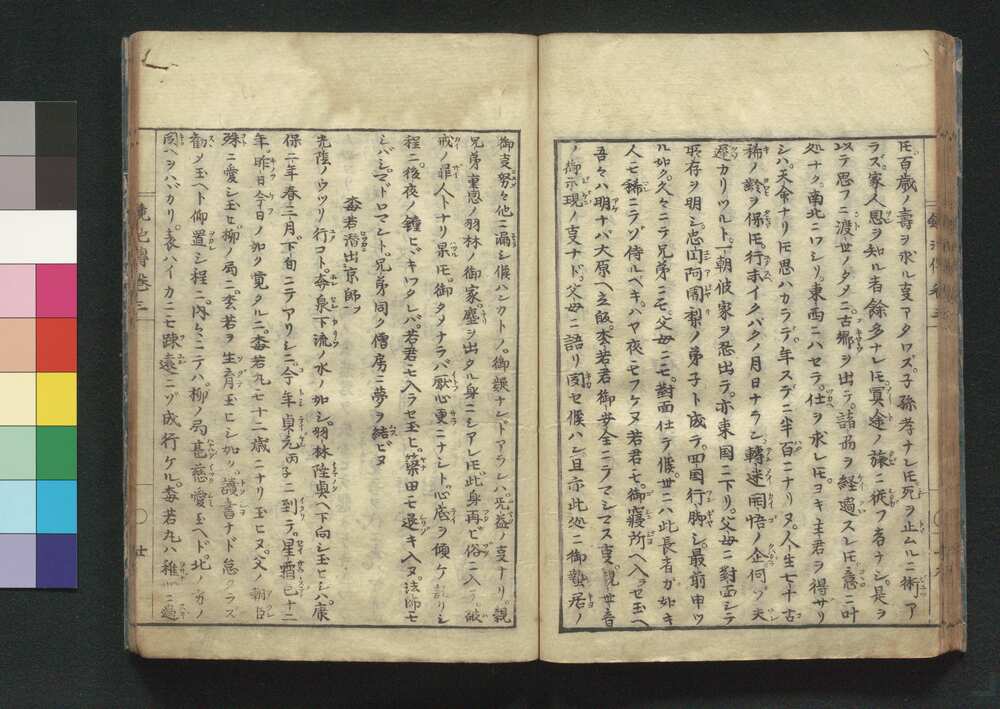 𪜈百歳ノ壽ヲ求ル叓アタワズ。子孫孝ナレ𪜈死ヲ止ムルニ術ア
ラズ。家人恩ヲ知ル者餘多ナレ𪜈冥途ノ旅ニ從フ者ナシ。是ヲ
以テ思フニ渡世ノタメニ。古郷ヲ出テ。諸国ヲ経過スレ𪜈意ニ叶
処ナク。南北ニワシリ。東西ニハセテ。仕ヲ求レ𪜈。ヨキ主君ヲ得ザリ
シハ。天命ナリ𪜈思ハカラデ。年スデニ半百ニナリヌ。人生七十古
稀ノ齢ヲ保𪜈。行末イクバクノ月日ナラン。轉迷開悟ノ企何ゾ夫
遲カリツルト。一朝彼家ヲ忍出テ。亦東国ニ下リ。父母ニ對面シテ
存ヲ明シ。忠圓阿闍梨ノ弟子ト成テ。四国行脚シ。最前申ツ
ル如ク。久々ニテ兄弟ニモ。父母ニモ。對面仕テ候。世ニハ此長者ガ如キ
人ニモ稀ニテゾ侍ルベキ。ハヤ夜モフケヌ若君ニモ。御寢所ヘ入ラセ玉ヘ
吾々ハ明ナバ大原ヘ立皈。李若君御安全ニテマシマス叓。親世音
ノ御示現ノ叓ナド。父母ニ語リ聞セ候ハン。且亦此処ニ御蟄居ノ
御叓努々他ニ漏シ候ハンカトノ。御疑ナンドアラレバ。无益ノ叓ナリ。親
兄弟重恩ノ羽林ノ御家。塵ヲ出タル身ニシアレ𪜈。此身再ビ俗ニ入リ。破
戒ノ罪人トナリ果𪜈。御タメナラバ。厭心更ニナシト。心底ヲ傾ケ語リシ
程ニ。後夜ノ鐘ヒヾキワタレバ。若君ニモ入ラセ玉ヒ。築田モ退キ入ヌ。法師モ
シバシマドロマント。兄弟同ク僧房ニ夢ヲ結ビヌ
李若潛出京師ヲ
光陰ノウツリ行コト。奔泉下流ノ水ノ如シ。羽林陸奥ヘ下向シ玉ヒシハ。康
保二年春三月下旬ニテアリシニ。今年貞元丙子ニ到テ。星霜已十二
年。昨日今日ノ如ク覚タルニ。李若丸七十二歳ニナリ玉ヒヌ。父ノ朝臣
殊ニ愛シ玉ヒ。柳ノ局ニ。李若ヲ生育玉ヒシ如リ。讀書ナド怠ラズ
勧メ玉ヘト仰置シ程ニ。内々ニテハ。柳ノ局甚慈愛玉ヘド𪜈。北ノ方ノ
聞ヘヲハバカリ。表ハイカニモ踈遠ニゾ成行ケル。李若丸ハ稚ニ過